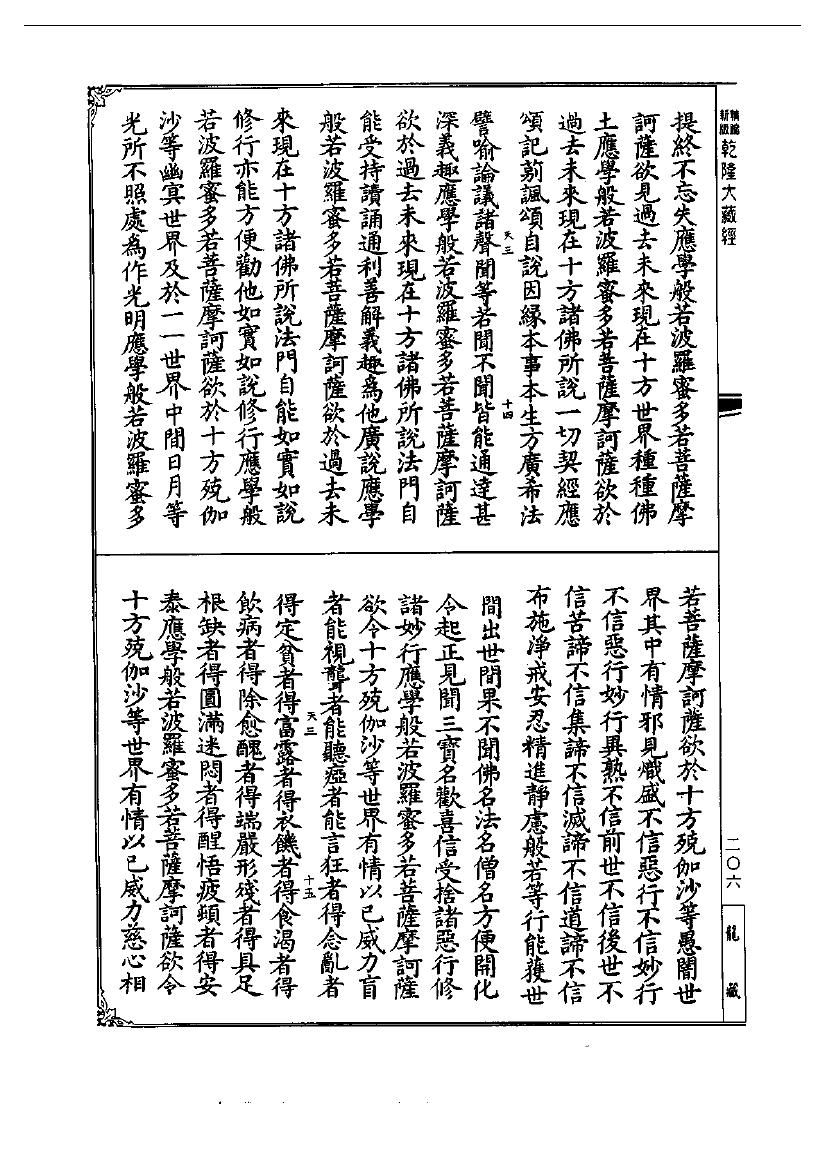 精編
新版
乾隆大藏經
提終不忘失應學般若波羅蜜多若菩薩摩
訶薩欲見過去未來現在十方世界種種佛
土應學般若波羅蜜多若菩薩摩訶薩欲於
過去未來現在十方諸佛所說一切契經應
頌記莂諷頌自說因緣本事本生方廣希法
天三
十四
譬喻論議諸聲聞等若聞不聞皆能通達甚
深義趣應學般若波羅蜜多若菩薩摩訶薩
欲於過去未來現在十方諸佛所說法門自
能受持讀誦通利善解義趣為他廣說應學
般若波羅蜜多若菩薩摩訶薩欲於過去未
來現在十方諸佛所說法門自能如實如說
修行亦能方便勸他如實如說修行應學般
若波羅蜜多若菩薩摩訶薩欲於十方殑伽
沙等幽冥世界及於一一世界中間日月等
光所不照處為作光明應學般若波羅蜜多
若菩薩摩訶薩欲於十方殑伽沙等愚闇世
界其中有情邪見熾盛不信惡行不信妙行
不信惡行妙行異熟不信前世不信後世不
信苦諦不信集諦不信滅諦不信道諦不信
布施淨戒安忍精進靜慮般若等行能獲世
間出世間果不聞佛名法名僧名方便開化
令起正見聞三寶名歡喜信受捨諸惡行修
諸妙行應學般若波羅蜜多若菩薩摩訶薩
欲令十方殑伽沙等世界有情以己威力盲
者能視聾者能聽瘂者能言狂者得念亂者
天三
十五
得定貧者得富露者得衣饑者得食渴者得
飲病者得除愈醜者得端嚴形殘者得具足
根缺者得圓滿迷悶者得醒悟疲頓者得安
泰應學般若波羅蜜多若菩薩摩訶薩欲令
十方殑伽沙等世界有情以己威力慈心相
二〇六
龍藏